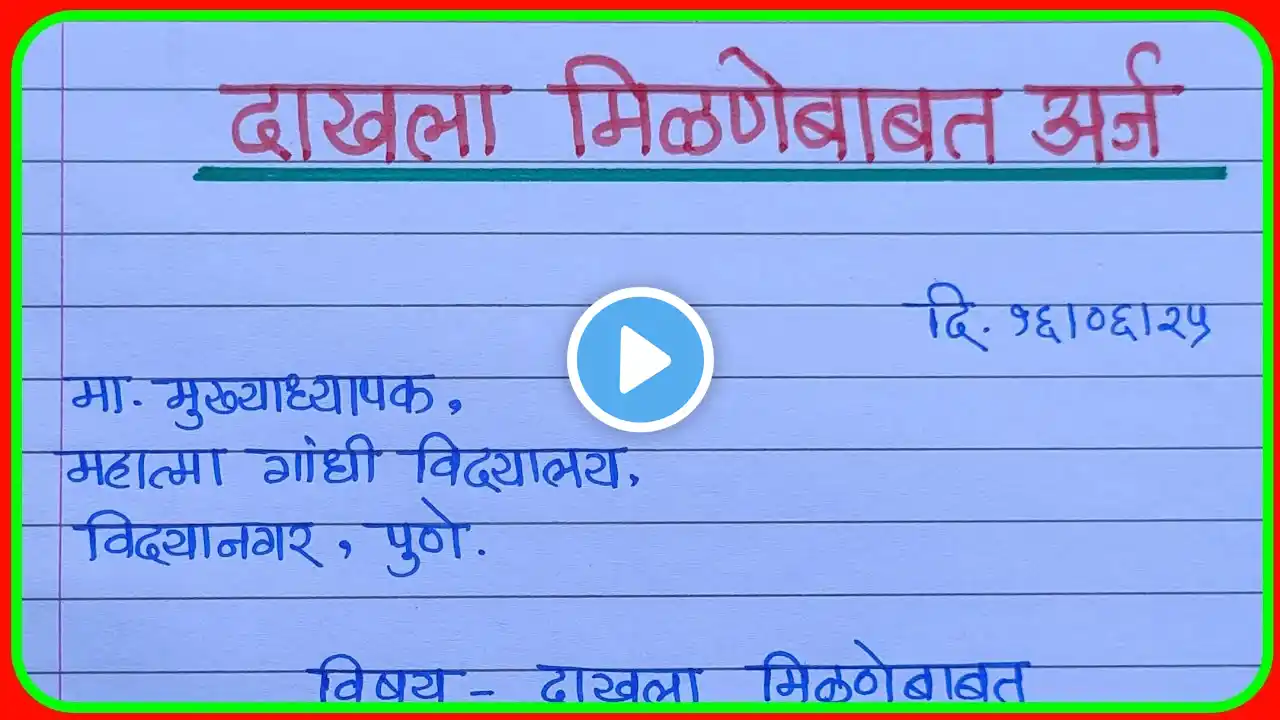 दाखला मिळणेबाबत अर्ज
दि. १६।०६।२५
मा. मुख्याध्यापक,
महात्मा गांधी विद्यालय,
विद्यानगर, पुणे.
विषय - दाखला मिळणेबाबत